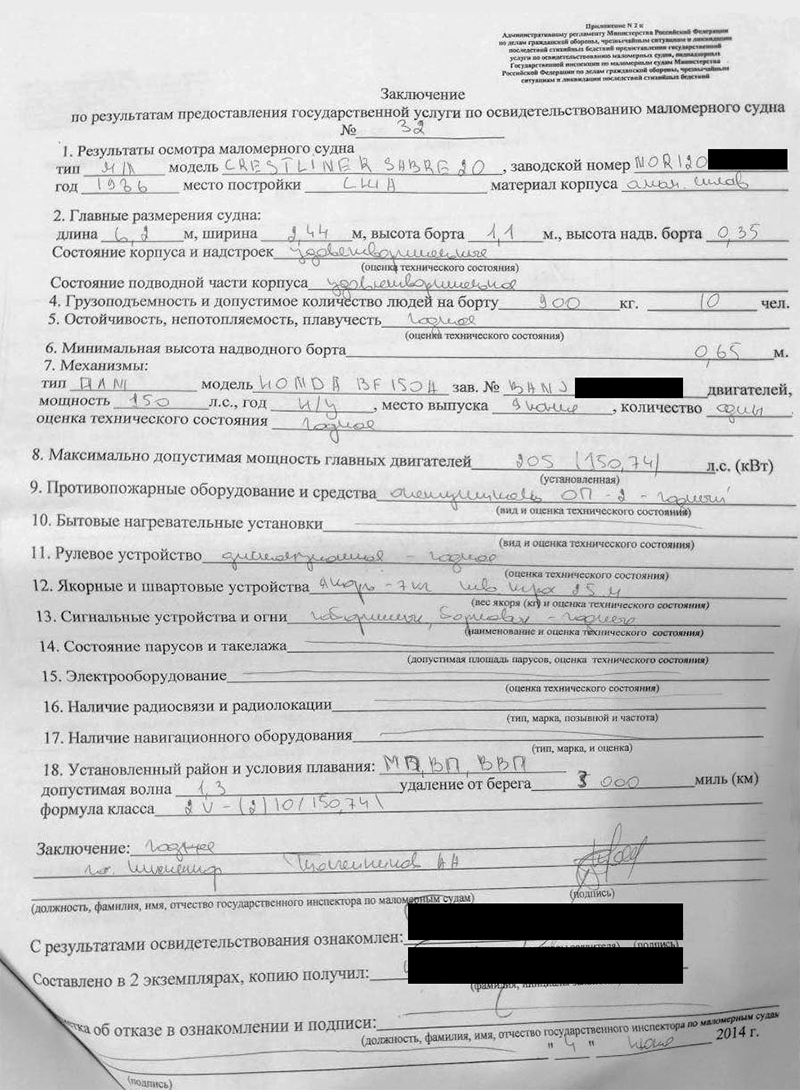 Приложение N 2 к
Административному регламенту Министерства Российской Федерации
по делам гражданской обороны, чрезвычайным ситуациям и ликвидации
последствий стихийных бедствий предоставления государственной
услуги по освидетельствованию маломерных судов, поднадзорных
Государственной инспекции по маломерным судам Министерства
Российской Федерации по делам гражданской обороны, чрезвычайным
ситуациям и ликвидации последствий стихийных бедствий
Заключение
по результатам предоставления государственной услуги по освидетельствованию маломерного судна
№ 32
1. Результаты осмотра маломерного судна
тип М/Л модель CRESTLINER SABRE 20, заводской номер NOR120
год 1986 место постройки США материал корпуса
2. Главные размерения судна:
длина 6,2 м, ширина 2,44 м, высота борта 1,1 м., высота надв. борта 0,35
Состояние корпуса и надстроек удовлетворительное
(оценка технического состояния)
Состояние подводной части корпуса удовлетворительное
4. Грузоподъемность и допустимое количество людей на борту 900 кг. 10 чел.
5. Остойчивость, непотопляемость, плавучесть годное
(оценка технического состояния)
6. Минимальная высота надводного борта 0,65 м.
7. Механизмы:
тип ПЛМ модель HONDA BF150A зав. № BANJ двигателей,
мощность 150 л.с., год Н/У, место выпуска Япония, количество один
оценка технического состояния годное
8. Максимально допустимая мощность главных двигателей 205 (150,74) л.с. (кВт)
(установленная)
9. Противопожарные оборудование и средства огнетушитель ОП-2 - годный
(вид и оценка технического состояния)
10. Бытовые нагревательные установки
(вид и оценка технического состояния)
11. Рулевое устройство дистанционное - годное
(оценка технического состояния)
12. Якорные и швартовые устройства якорь - 7 кг 25 м
(вес якоря (кг) и оценка технического состояния)
13. Сигнальные устройства и огни
(наименование и оценка технического состояния)
14. Состояние парусов и такелажа
(допустимая площадь парусов, оценка технического состояния)
15. Электрооборудование
(оценка технического состояния)
16. Наличие радиосвязи и радиолокации
(тип, марка, позывной и частота)
17. Наличие навигационного оборудования
(тип, марка, и оценка)
18. Установленный район и условия плавания: МП, ВП, ВВП
допустимая волна 1,3 удаление от берега 3000 миль (км)
формула класса 2V-(2)10/150,74\
Заключение: годное
гос. инспектор
(подпись)
(должность, фамилия, имя, отчество государственного инспектора по маломерным судам)
С результатами освидетельствования ознакомлен:
(подпись)
Составлено в 2 экземплярах, копию получил:
об отказе в ознакомлении и подписи:
(должность, фамилия, имя, отчество государственного инспектора по маломерным судам
" 4 " июня 2014 г.
(подпись)